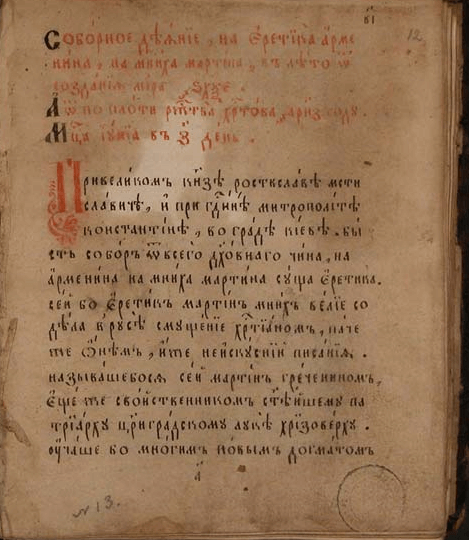 в҃і
12
Собо́рное дѣѧ́нїе, на є҆ретїка̀ а҆рме
нина, на мниха мартина, въ лѣто ѿ
создани́ѧ мі́ра ҂ѕхх҃е.
А ѿ по плоти рж҃тва̀ хр҃това ҂арн҃з году.
Мц҃а їꙋ́нїѧ въ з҃ де́нь.
При великомъ кн҃зѣ ростиславѣ мсти
славичѣ, и҆ при гд҃инѣ митрополі́тѣ
константінѣ, во гра́дѣ кі́евѣ. бы́
сть собо́ръ ѿ всего̀ дх҃овнаго чина, на
а҆рменина на мниха мартина суща є҆ретика.
се́й бо є҆рети́къ марті́нъ мни́хъ ве́лїе со
дѣла в рꙋсѣ смуще́нїе хр҃тїа́номъ, па́че
же ѻ҆́нѣмъ, и҆́же неискꙋ́снїи писа́нїѧ.
называ́шебосѧ се́й марті́нъ гре́чениномъ,
є҆ще́ же сво́йственникомъ ст҃ѣ́йшему па
трїа́рху цр҃игра́дскому лукѣ̀ хрїзове́рху.
ᲂу҆ча́ше бо мно́гимъ но́вымъ до́гматомъ
а҃
№ 13.